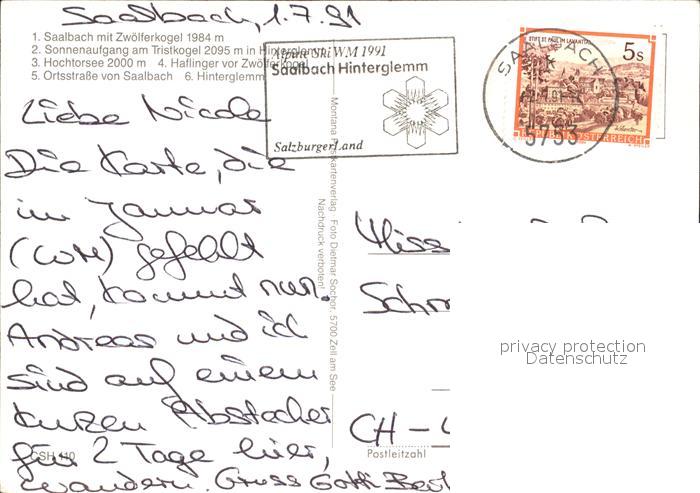 Saalbach, 1.7.91
1. Saalbach mit Zwölferkogel 1984 m
2. Sonnenaufgang am Tristkogel 2095 m in Hinterglemm
3. Hochtorsee 2000 m 4. Haflinger vor Zwölferkogel
5. Ortsstraße von Saalbach 6. Hinterglemm
Alpine Ski WM 1991
Saalbach Hinterglemm
SalzburgerLand
STIFT ST. PAUL IM LAVANTTAL
5s
REPUBLIK ÖSTERREICH
SAALBACH
5753
Liebe Nicole
Die Karte, die
im Januar
(WM) gefehlt
hat, kommt nun.
Andreas und ich
sind auf einem
kurzen Abstecher
für 2 Tage hier,
wandern. Gruss Gotti
CSH 110
Montana Postkartenverlag Foto Dietmar Sochor, 5700 Zell am See
Nachdruck verboten!
Miss
CH –
Postleitzahl
privacy protection
Datenschutz